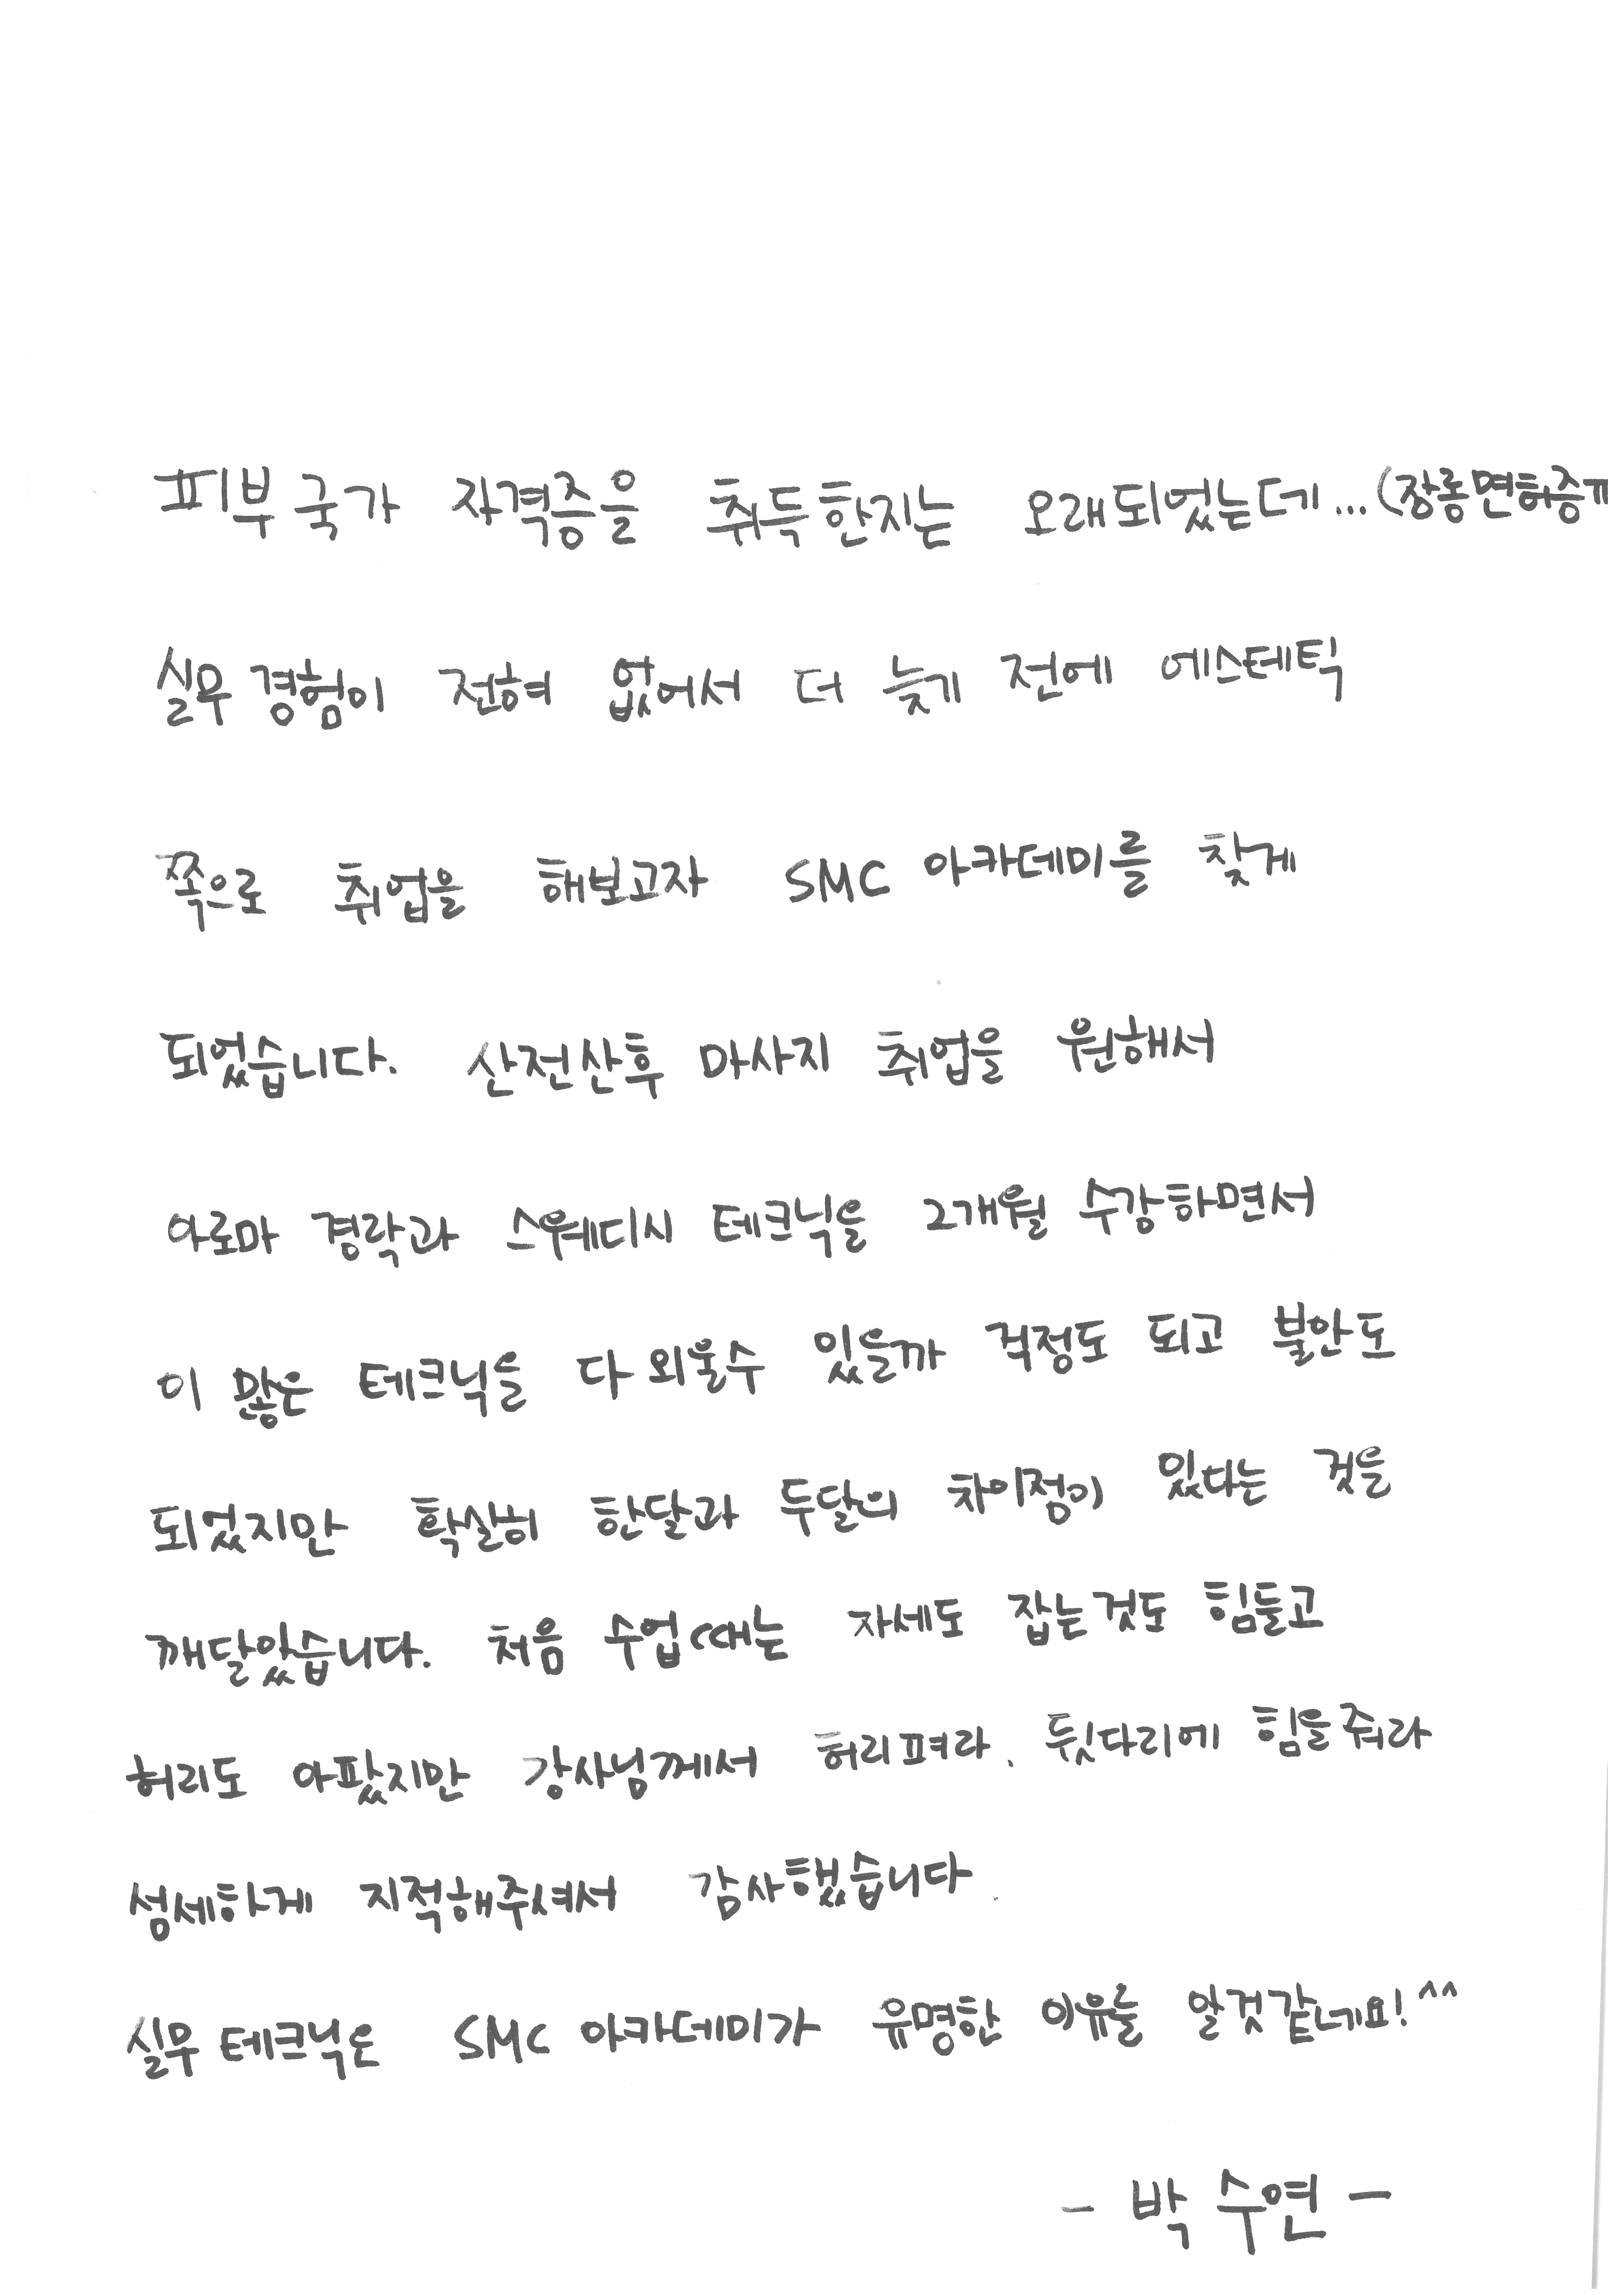 피부 국가 자격증을 취득한지는 오래되었는데...(장롱면허증ㅠ
실무 경험이 전혀 없어서 더 늦기 전에 에스테틱
쪽으로 취업을 해보고자 SMC 아카데미를 찾게
되었습니다. 산전산후 마사지 취업을 원해서
아로마 경락과 스웨디시 테크닉을 2개월 수강하면서
이 많은 테크닉을 다 외울수 있을까 걱정도 되고 불안도
되었지만 확실히 한달과 두달의 차이점이 있다는 것을
깨달았습니다. 처음 수업때는 자세도 잡는것도 힘들고
허리도 아팠지만 강사님께서 허리펴라, 뒷다리에 힘을줘라
섬세하게 지적해주셔서 감사했습니다.
실무 테크닉은 SMC 아카데미가 유명한 이유를 알것같네요!^^
- 박 수연 -